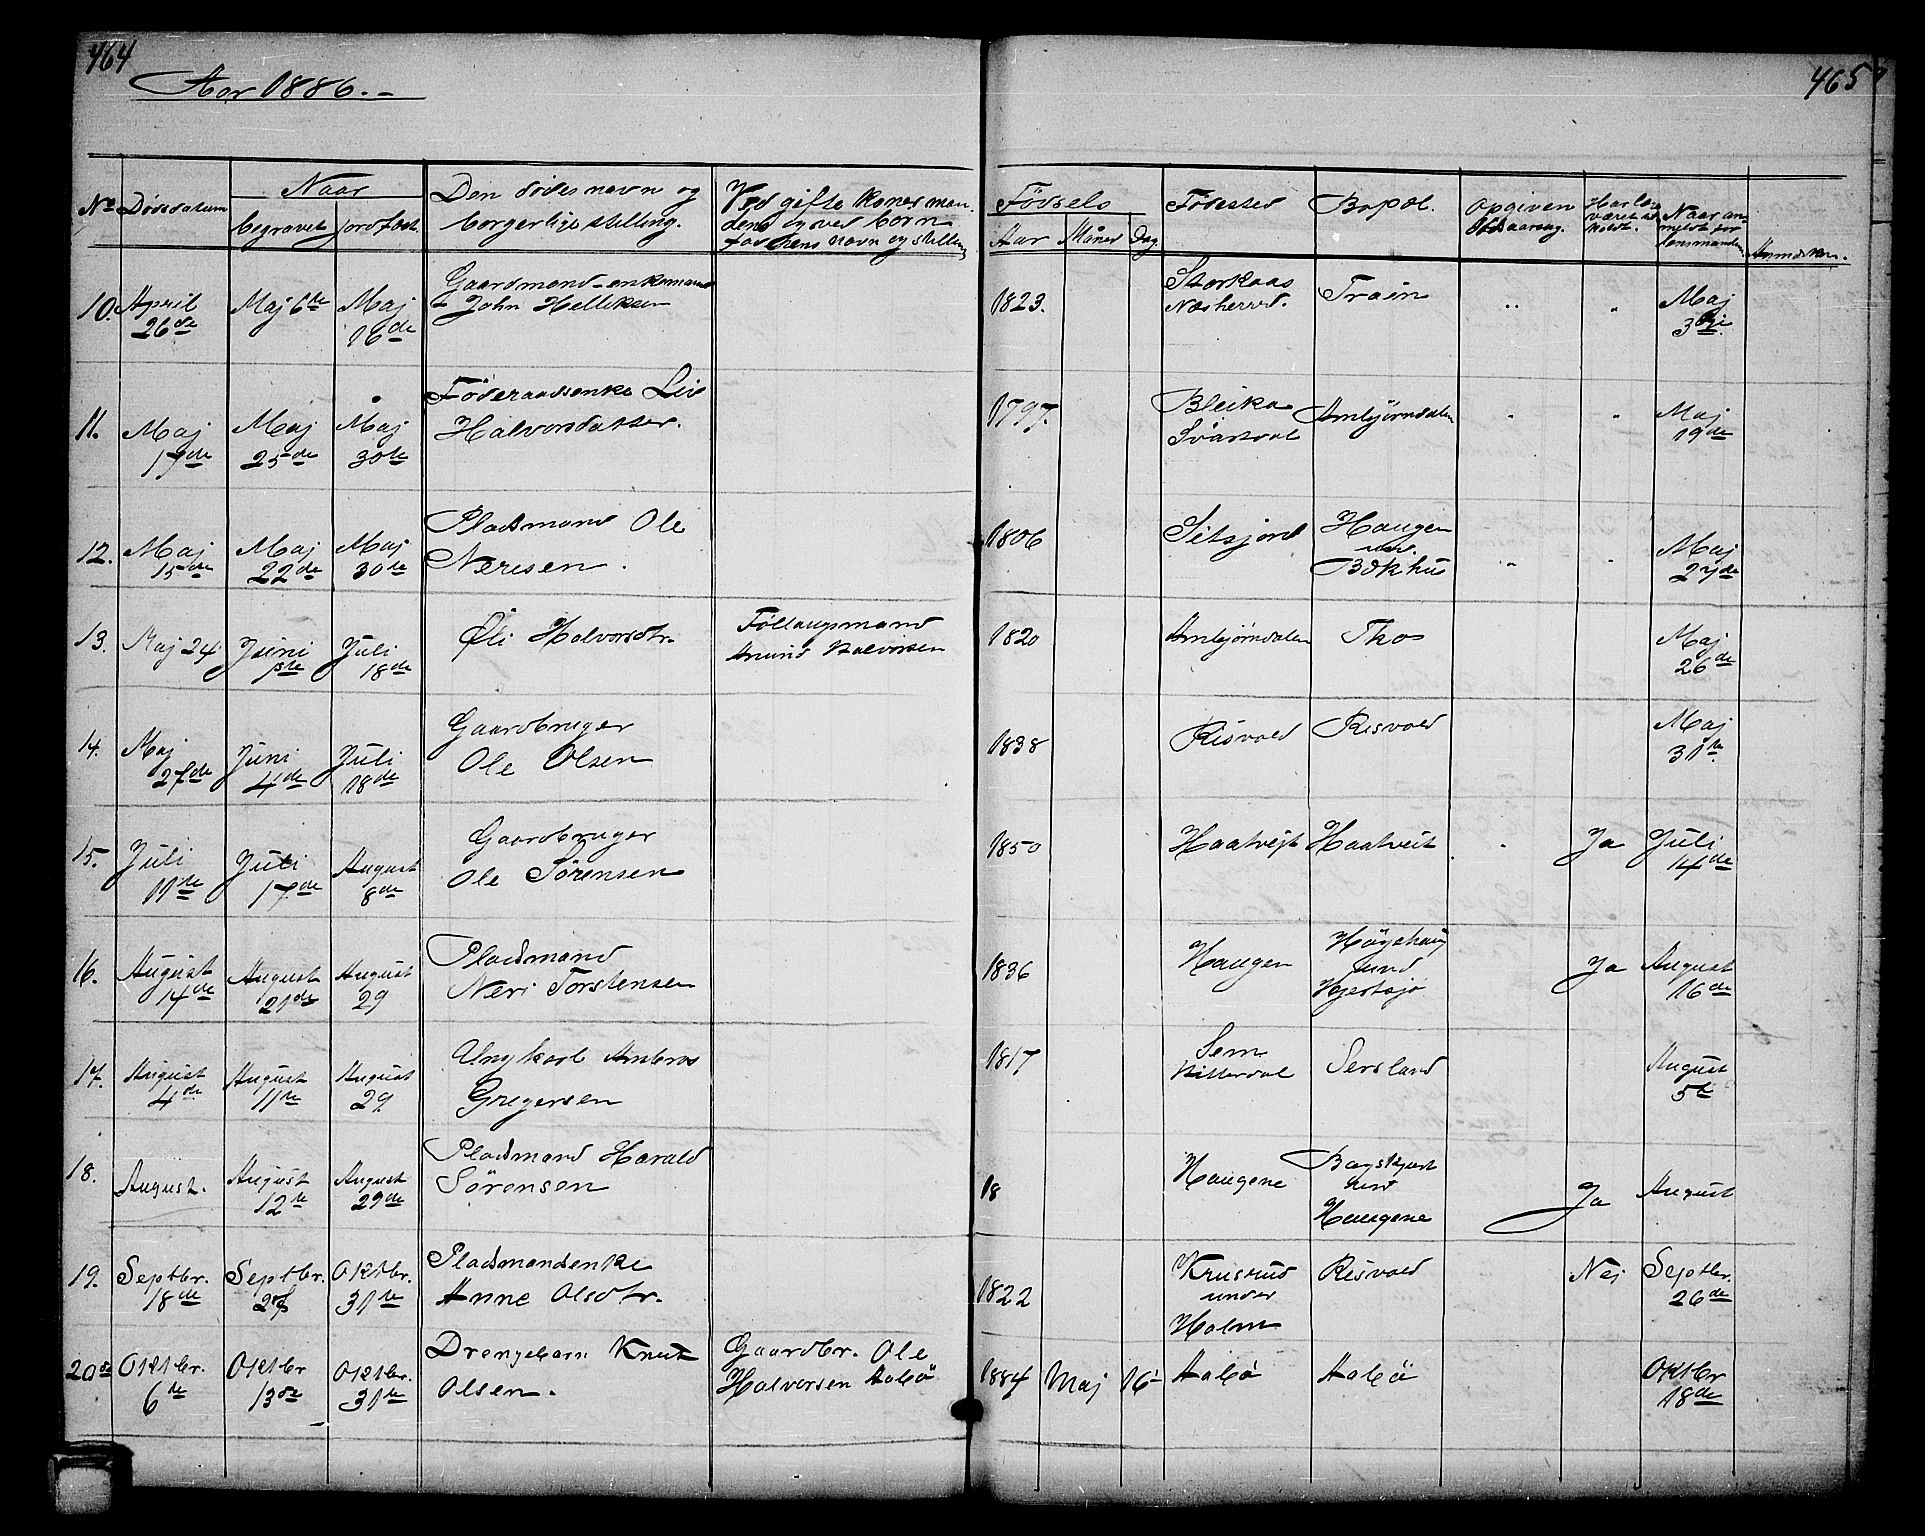 464
Aar 1886.-
465
No Dödsdatum
Naar
begravet jordfæst.
Den dödes navn og
borgerlige stilling.
Ved gifte koner man-
dens og ved börn
farens navn og stilling
Födsels
Aar Maaned Dag
Födested
Bopæl.
Opgiven
Dödsaarsag.
Naar an-
meldt for
lensmanden.
Anmærkn.
10. April 26de Maj 6te Maj 16de
Gaardmand-enkemand
John Helliksen
1823.
Næsherred.
Træin
" "
Maj
3die
11. Maj 17de Maj 25de Maj 30te
Föderaadsenke Liv
Halvorsdatter.
1797.
Bleika
Svartdal
Ambjörndalen
" "
Maj
19de
12. Maj 15de Maj 22de Maj 30te
Pladsmand Ole
Neresen.
1806
Sitsjord
Haugen
und.
Bökhus
" "
Maj
27de
13. Maj 24 Juni 1ste Juli 18de
Öli Halvorsdtr.
Föllaugsmand
Anund Halvorsen
1820
Ambjörndalen
Tho
Maj
26de
14. Maj 27de Juni 4de Juli 18de
Gaardbruger
Ole Olsen
1838
Risvold
Risvold
Maj
31te
15. Juli 11de Juli 17de August 8de
Gaardbruger
Ole Sörensen
1850
Haatvejt
Haatveit
Ja
Juli
14de
16. August 14de August 21de August 29
Pladsmand
Neri Torstensen
1836
Haugen
Högehaug
und
Hjertsjö
Ja
August
16de
17. August 4de August 11te August 29
Ungkarl Ambros
Gregersen
1817
Sem
Hitterdal
Sersland
August
5te
18. August. August 12te August 29de
Pladsmand Harald
Sörensen
18
Haugene
und
Haugene
Ja
August
19. Septbr. 18de Septbr. Oktbr. 31te
Pladsmandenke
Anne Olsdtr.
1822
under
Holm
Risvold
Nej
Septbr.
26de
20de Oktbr. 6te Oktbr 13de Oktbr. 31te
Drengebarn Knut
Olsen.
Gaardbr. Ole
Halvorsen Aabö
1884 Maj 16
Aabö
Aabö
Oktbr
18de